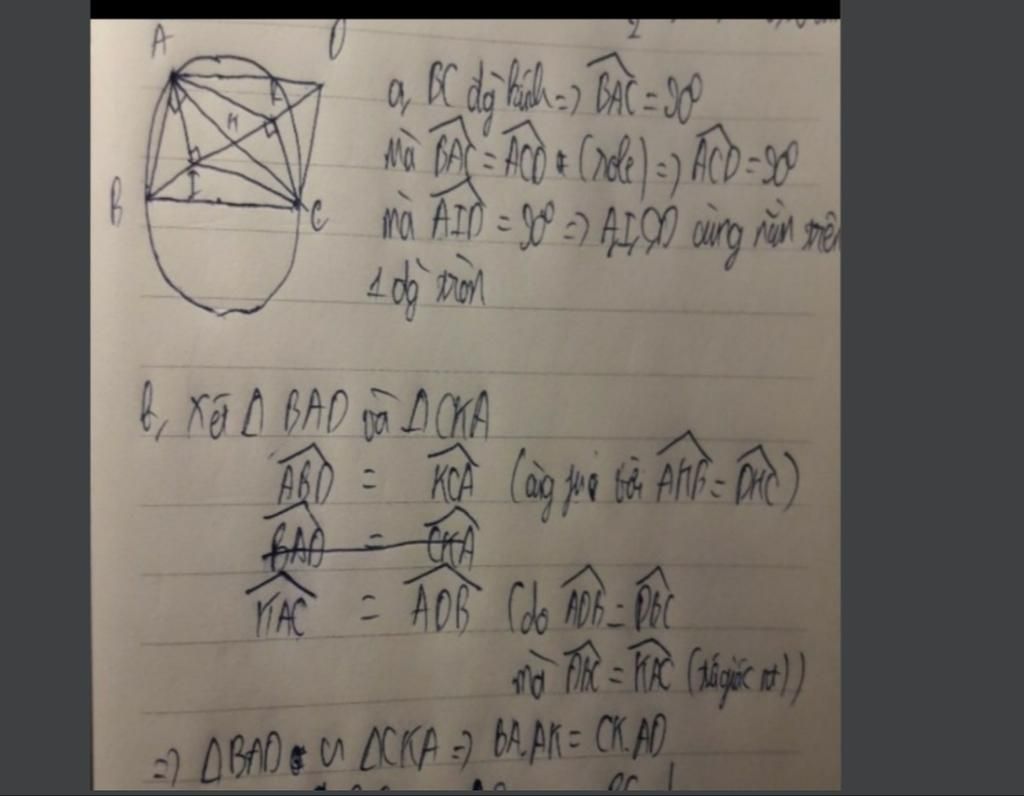 A
B
C
I
H
a, BC đg kính => BAC = 90°
Mà BAC = ACD (sole) => ACD = 90°
mà AID = 90° => A,I,C,D cùng nằm trên
1 đg tròn
b, Xét Δ BAD và Δ CKA
ABD = KCA (cùng phụ với AHB = DHC)
BAD = CKA
KAC = ADB (do ADB = DBC
mà DBC = KAC (tứ giác nt))
=> ΔBAD ∽ ΔCKA => BA.AK = CK.AD